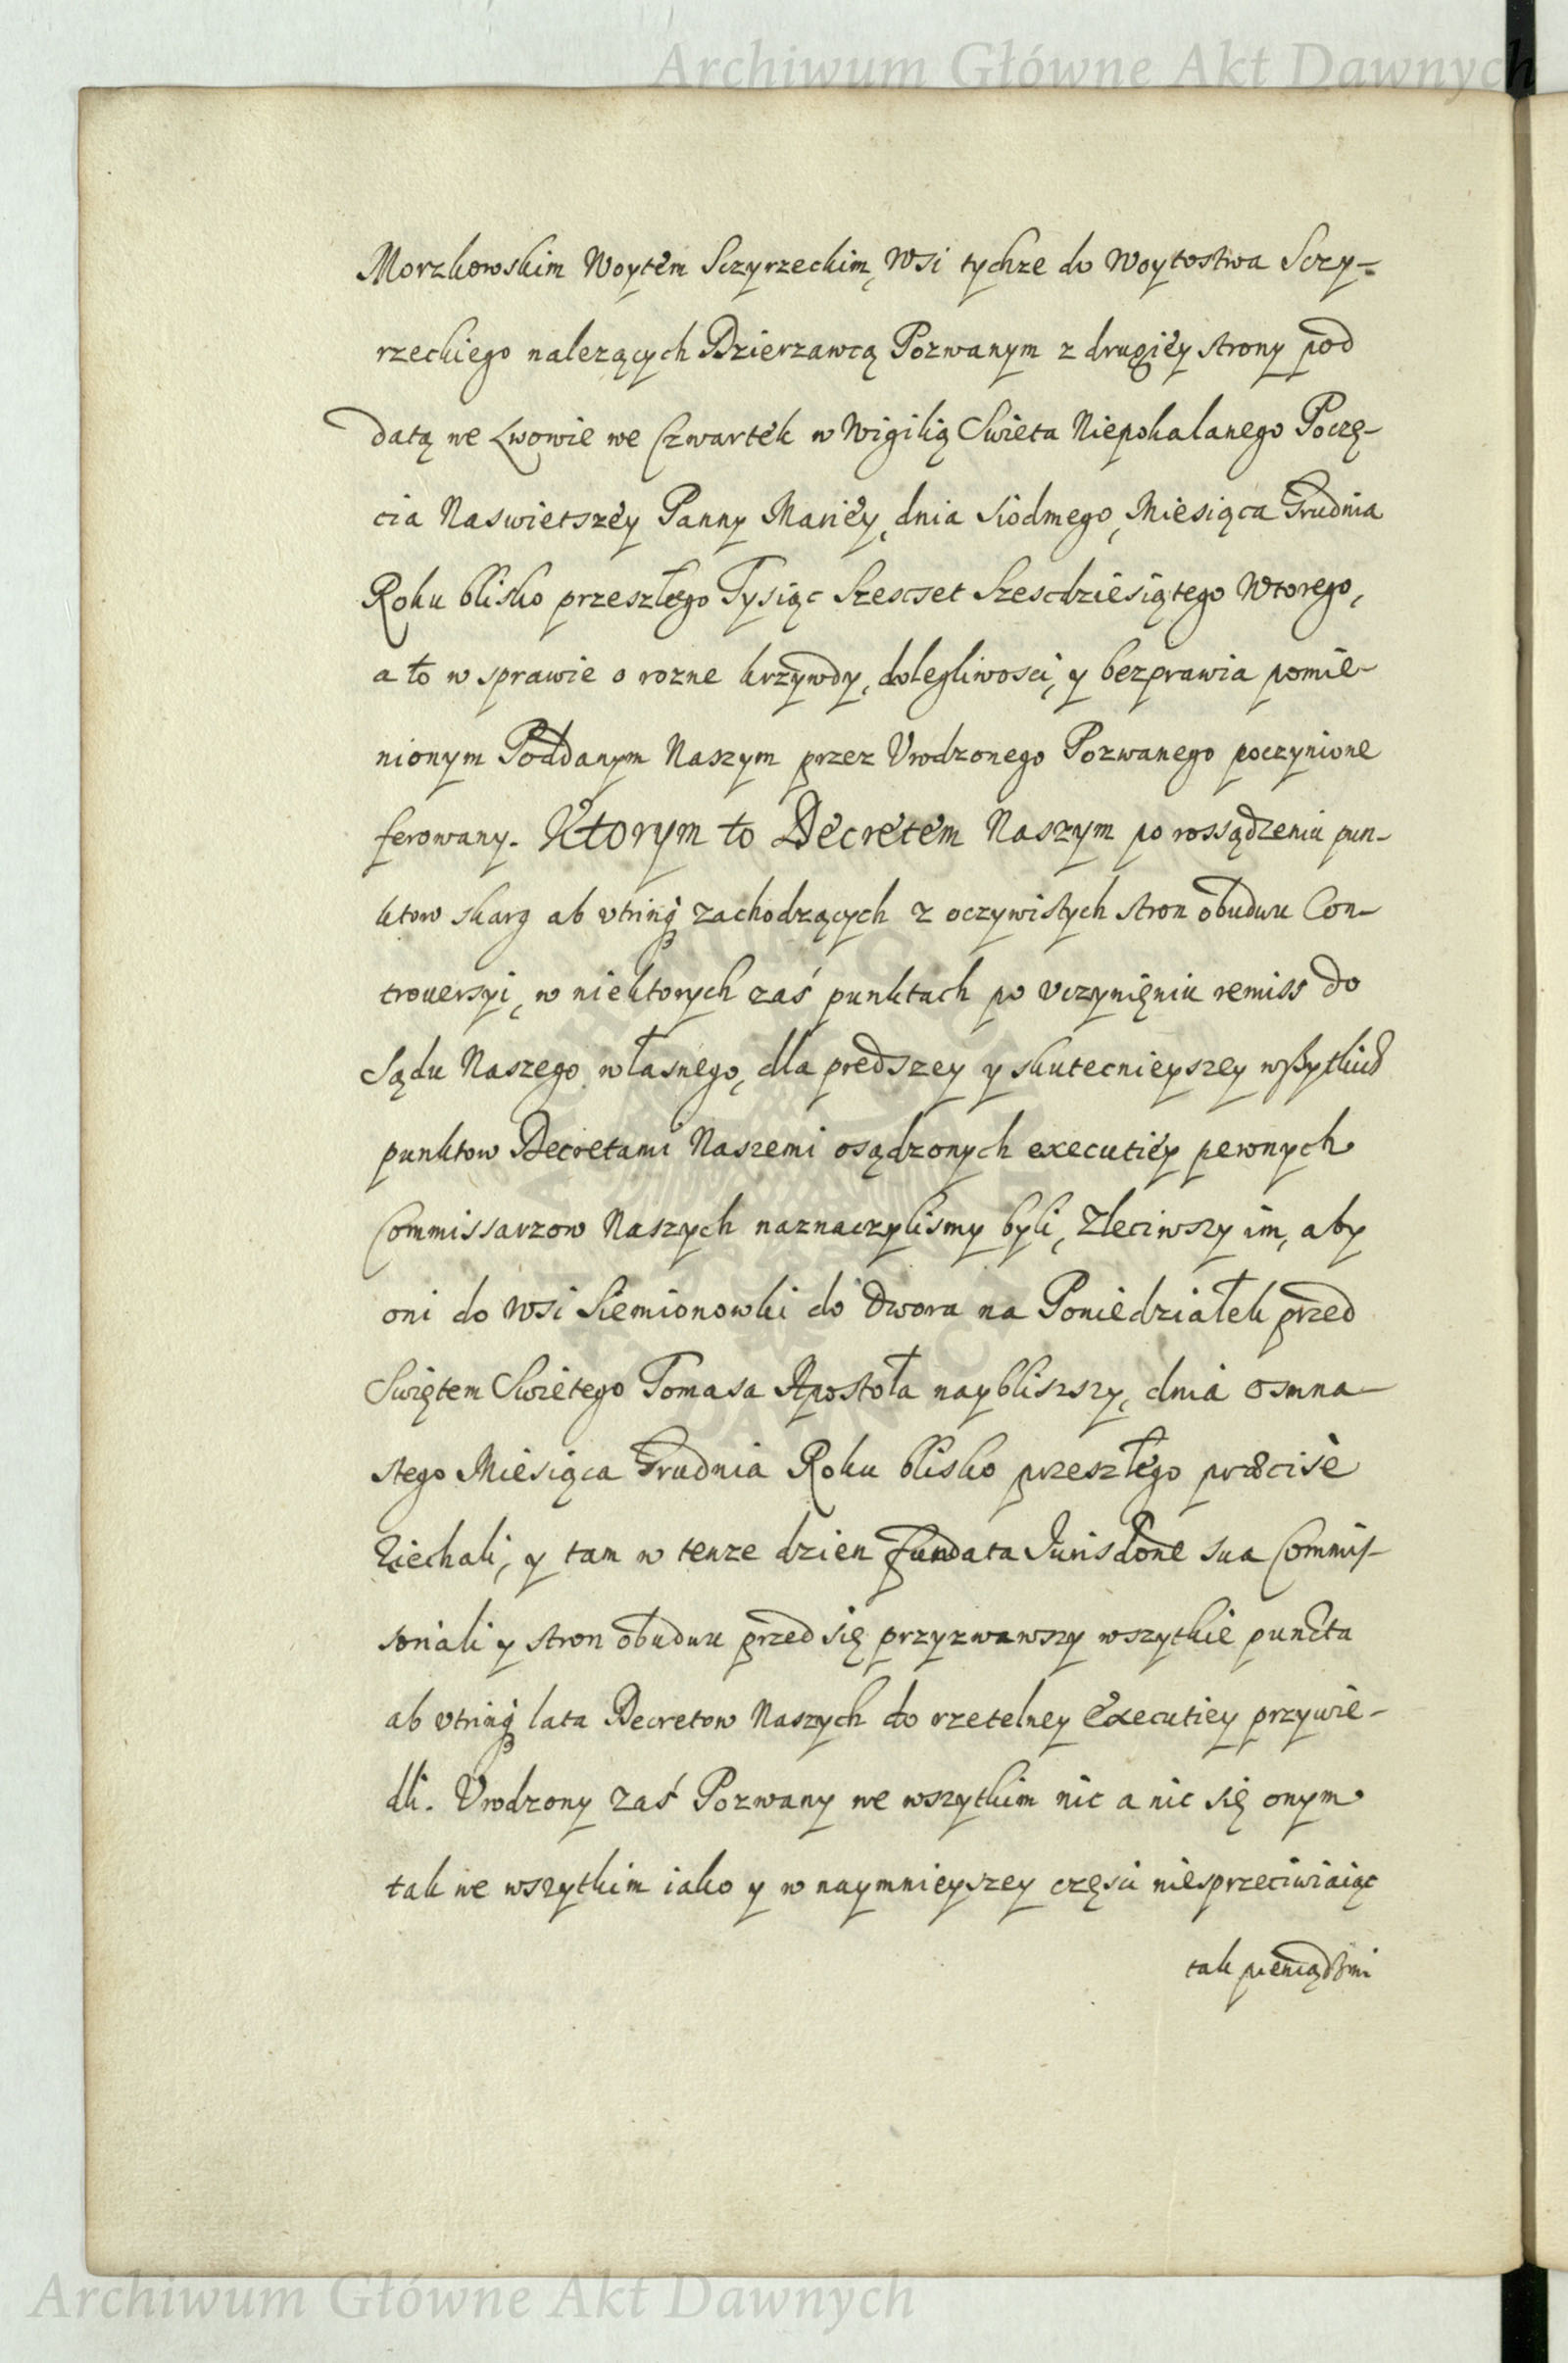 Archiwum Główne Akt Dawnych
Morzkowskim Woytem Sczyrzeckim, Wsi tychze do Woytostwa Sczy-
rzeckiego nalezących Dzierzawcą Pozwanym z drugiey strony pod
datą we Lwowie we Czwartek w Wigilią Swieta Niepokalanego Poczę-
cia Naswietszey Panny Mariey, dnia siodmego, Miesiąca Grudnia
Roku blisko przeszłego Tysiąc Szescset Szescdziesiątego Wtorego,
a to w sprawie o rozne krzywdy, dolegliwosci, y bezprawia pomie-
nionym Poddanym Naszym przez Vrodzonego Pozwanego poczynione
ferowany. Ktorym to Decretem Naszym po rossądzeniu pun-
ktow skarg ab vtrinq zachodzących z oczywistych stron obudwu Con-
trouersyi, w niektorych zaś punktach po vczynięniu remiss do
Sądu Naszego własnego, dla predszey y skutecnieyszey wßytkich
punktow Decretami Naszemi osądzonych executiey pewnych
Commissarzow Naszych naznaczylismy byli, Zleciwszy im, aby
oni do Wsi Siemionowki do Dwora na Poniedziałek przed
Swiętem Swietego Tomasa Apostoła naybliszszy, dnia osmna-
stego Miesiąca Grudnia Roku blisko przeszłego præcise
Ziechali, y tam w tenze dzien fundata Jurisdone sua Commis-
soriali y stron obudwu przed się przyzwawszy wszytkie puncta
ab vtrinq lata Decretow Naszych do rzetelney executiey przywie-
dli. Vrodzony zaś Pozwany we wszytkim nic a nic się onym
tak we wszytkim iako y w naymnieyszey częsci niesprzeciwiaiąc
tak pieniądzmi
Archiwum Główne Akt Dawnych